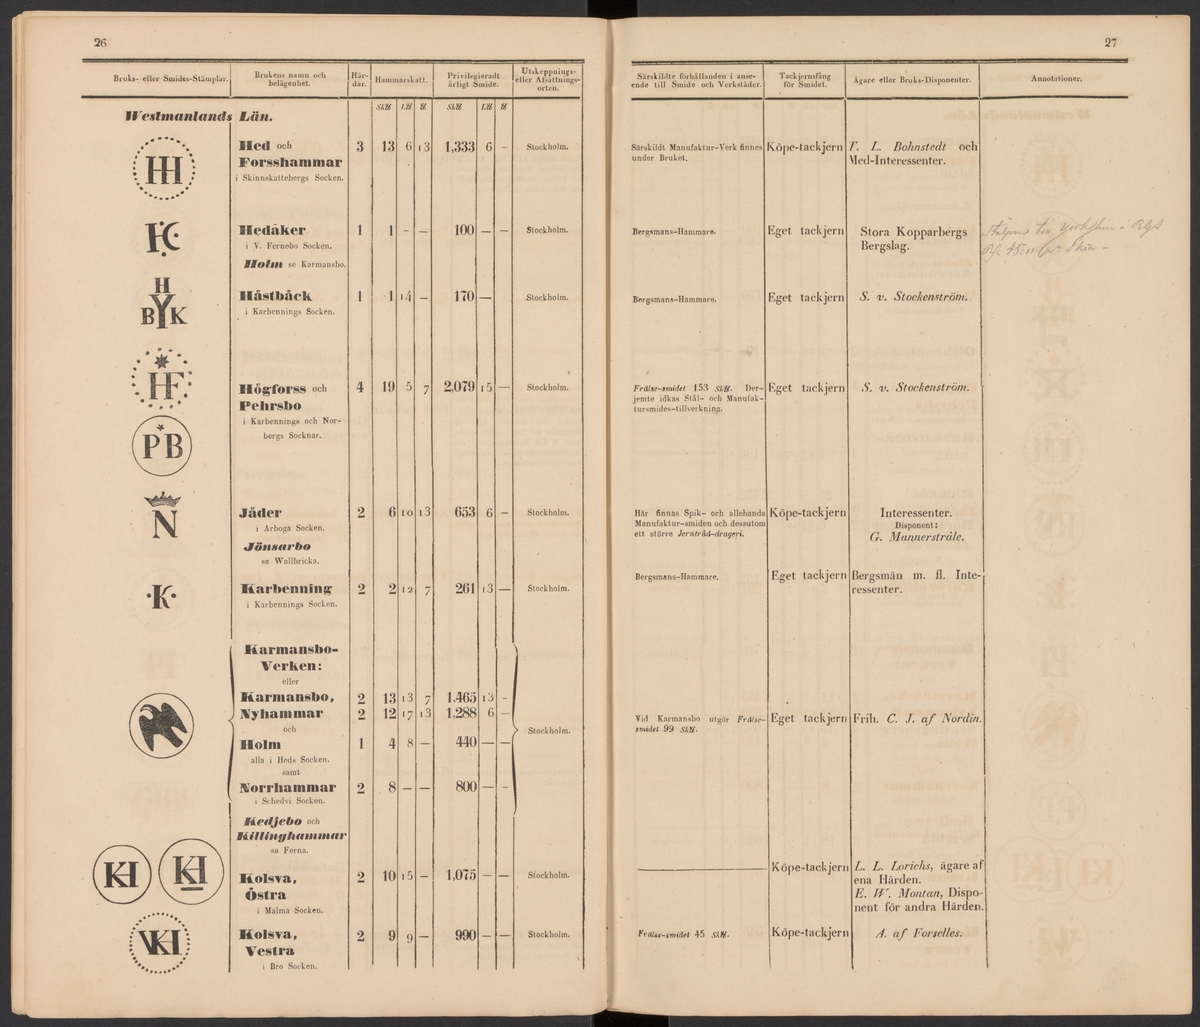 26
Bruks- eller Smides-Stämplar.
Brukens namn och
belägenhet.
Här-
dar.
Hammarskatt.
Privilegieradt
årligt Smide.
Utskeppnings-
eller Afsättnings-
orten.
Sk℔ L℔ ℔ Sk℔ L℔ ℔
Westmanlands Län.
HH
Hed och 3 13 6 13 1,333 6 - Stockholm.
Forsshammar
i Skinnskattebergs Socken.
Hedåker 1 1 - - 100 - - Stockholm.
i V. Fernebo Socken.
Holm se Karmansbo.
H
BYK
Håstbäck 1 1 14 - 170 - Stockholm.
i Karbennings Socken.
HF
Högforss och 4 19 5 7 2,079 15 - Stockholm.
Pehrsbo
i Karbennings och Nor-
bergs Socknar.
PB
N
Jäder 2 6 10 13 653 6 - Stockholm.
i Arboga Socken.
Jönsarbo
se Wallbricka.
·K·
Karbenning 2 2 12 7 261 13 - Stockholm.
i Karbennings Socken.
Karmansbo-
Verken:
eller
Karmansbo, 2 13 13 7 1,465 13 -
Nyhammar 2 12 17 13 1,288 6 -
och Stockholm.
Holm 1 4 8 - 440 - -
alla i Heds Socken.
samt
Norrhammar 2 8 - - 800 - -
i Schedvi Socken.
Kedjebo och
Killinghammar
se Ferna.
KH KH
Kolsva, 2 10 15 - 1,075 - - Stockholm.
Östra
i Malma Socken.
VKH
Kolsva, 2 9 9 - 990 - - Stockholm.
Vestra
i Bro Socken.
27
Särskildte förhållanden i anse-
ende till Smide och Verkstäder.
Tackjernsfång
för Smidet.
Ägare eller Bruks-Disponenter.
Annotationer.
Särskildt Manufaktur-Verk finnes Köpe-tackjern T. L. Bohnstedt och
under Bruket. Med-Interessenter.
Bergsmans-Hammare. Eget tackjern Stora Kopparbergs
Bergslag.
Bergsmans-Hammare. Eget tackjern S. v. Stockenström.
Frälse-smidet 153 Sk℔. Der- Eget tackjern S. v. Stockenström.
jemte idkas Stål- och Manufak-
tursmides-tillverkning.
Här finnas Spik- och allehanda Köpe-tackjern Interessenter.
Manufaktur-smiden och dessutom Disponent:
ett större Jerntråd-drageri. G. Mannerstråle.
Bergsmans-Hammare. Eget tackjern Bergsmän m. fl. Inte-
ressenter.
Vid Karmansbo utgör Frälse- Eget tackjern Frih. C. J. af Nordin.
smidet 99 Sk℔.
Köpe-tackjern L. L. Lorichs, ägare af
ena Härden.
E. W. Montan, Dispo-
nent för andra Härden.
Frälse-smidet 45 Sk℔. Köpe-tackjern A. af Forselles.